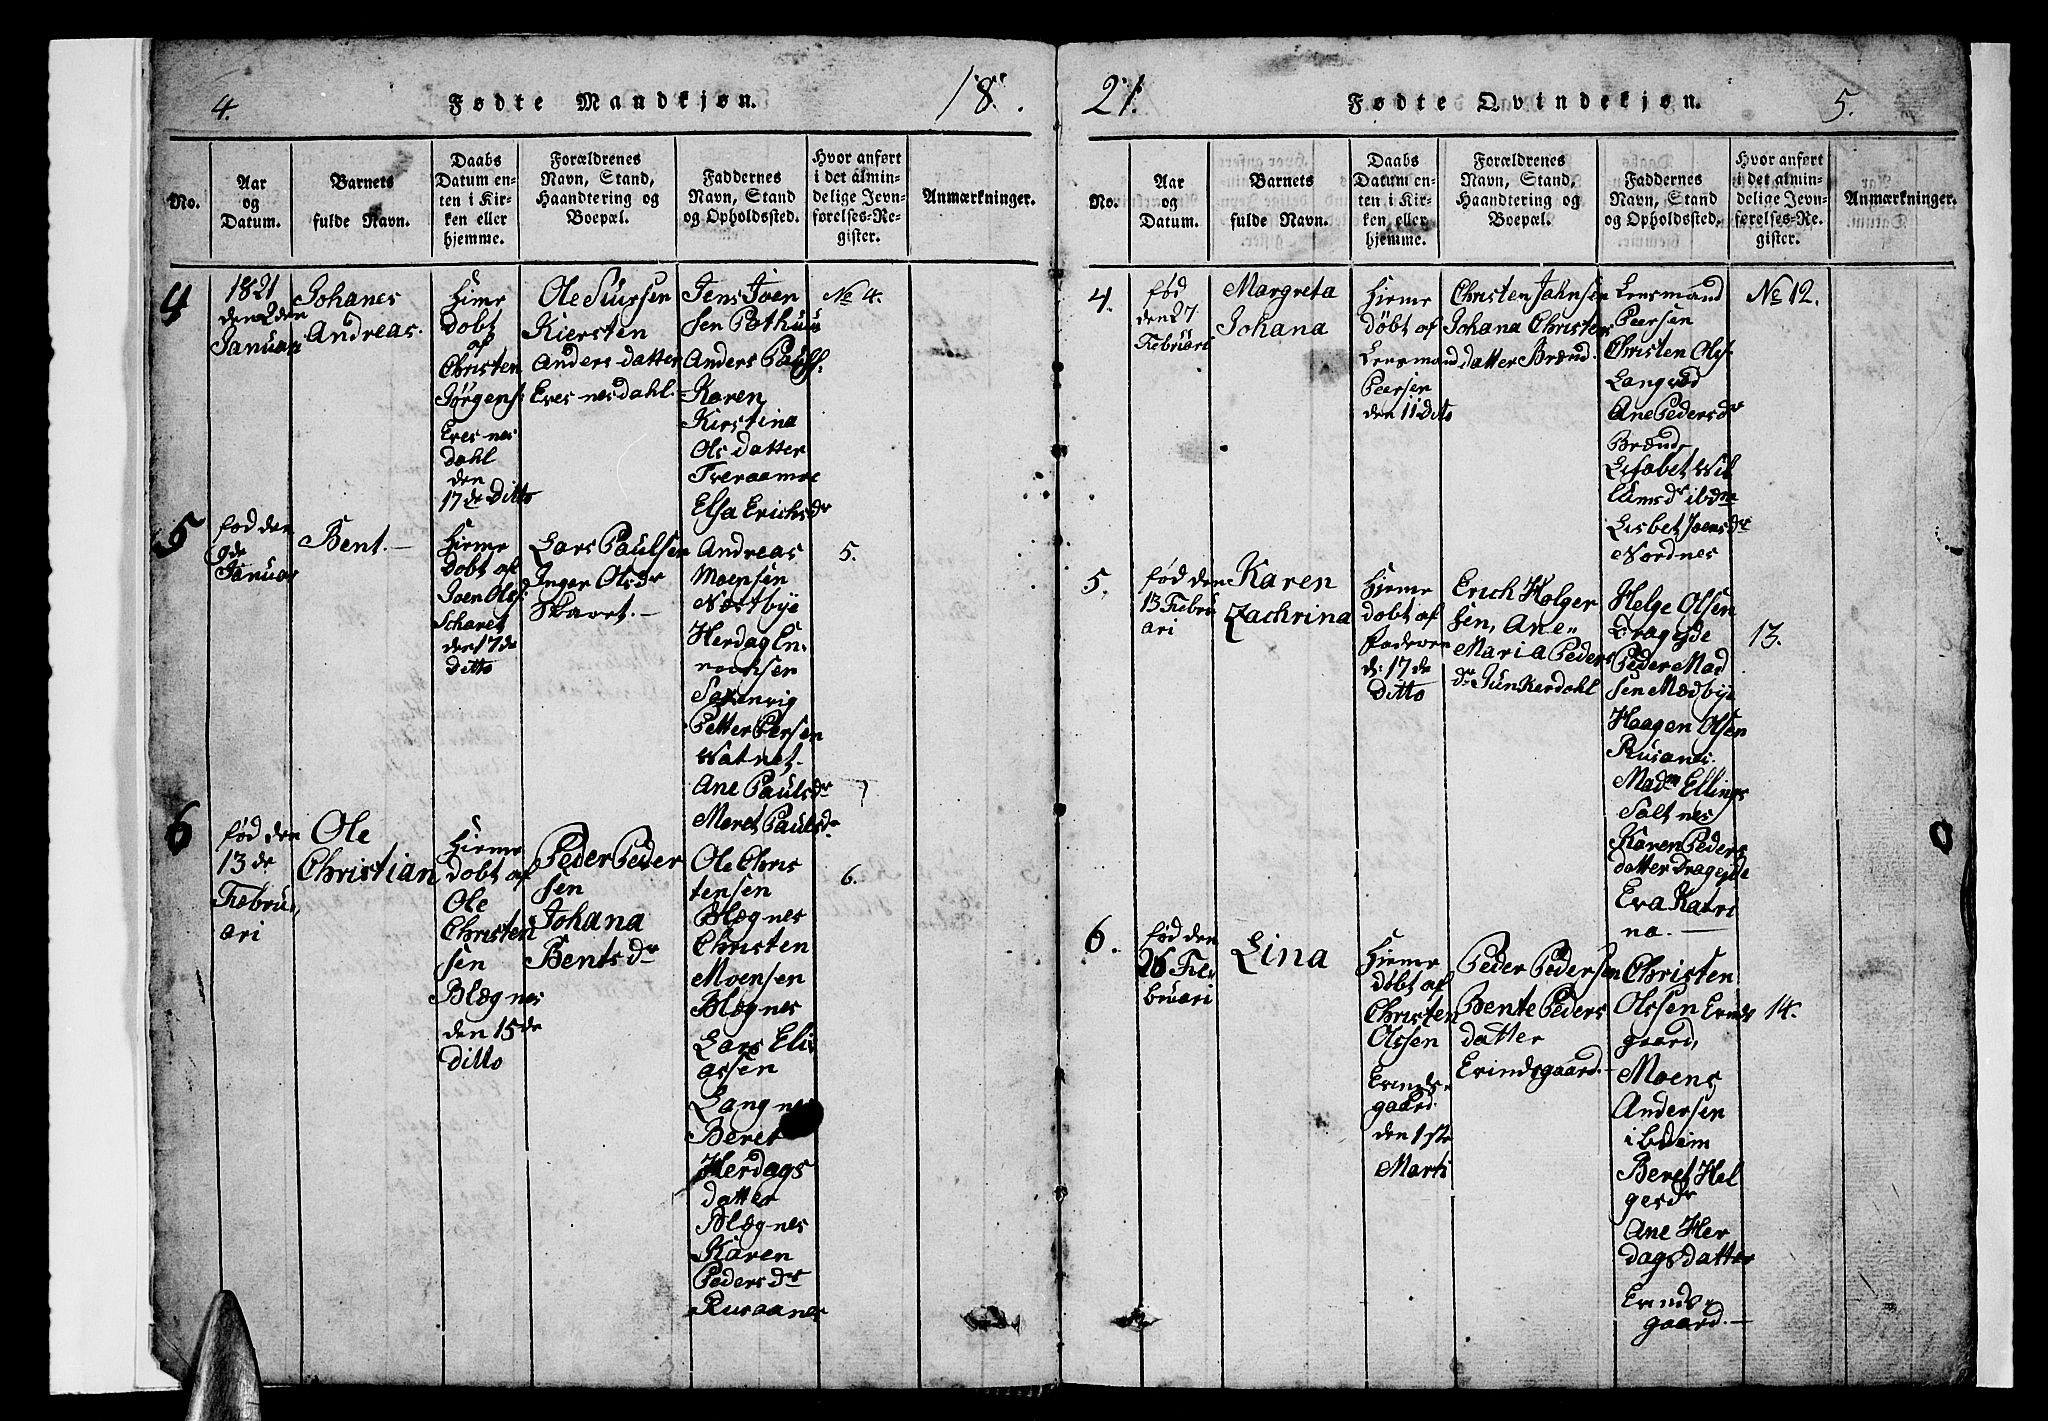 4.
Fødte Mandkjøn.
18
No.
Aar
og
Datum.
Barnets
fulde Navn.
Daabs
Datum en-
ten i Kir-
ken eller
hjemme.
Forældrenes
Navn, Stand,
Haandtering og
Boepæl.
Faddernes
Navn, Stand
og Opholdssted.
Hvor anført
i det almin-
delige Jevn-
førelses-Re-
gister.
Anmærkninger.
4
1821
den 2den
Januari
Johanes
Andreas.
Hime
døbt
af
Christen
Jørgens:
Eves nes
dahl
den
17de Ditto
Ole Siursen
Kiersten
Anders datter
Eves nesdahl.
Jens Joen
sen Pothuus
Anders Pauls.
Karen
Kirstina
Ols datter
Tveraamoe
Elsa Erichsdr
No 4.
5
fød den
9de
Januar
Bent.
Hieme
døbt af
Joen Ols:
Scharet
den 17de
Ditto
Lars Paulsen
Inger Olsdr
Skaret.
Andreas
Moensen
Næstbye
Herdag En-
sen
Saxenvig
Petter Persen
Watnet.
Ane Paulsdr
Meret Paulsdr
5.
6
fød den
13de
Febru
ari
Ole
Christian
Hieme
døbt af
Ole
Christen
sen
Blægnes
den 15de
Ditto
Peder Peder
sen
Johana
Bentsdr
Ole Chris
tensen
Blægnes
Christen
Moensen
Blægnes
Lars Eli
assen
Langnes
Berit
Herdags
datter
Blægnes
Karen
Pedersdr
Rusaanes
6.
21.
Fødte Qvindekjøn.
5.
No.
Aar
og
Datum.
Barnets
fulde Navn.
Daabs
Datum en-
ten i Kir-
ken, eller
hjemme.
Forældrenes
Navn, Stand,
Haandtering og
Boepæl.
Faddernes
Navn, Stand
og Opholdssted.
Hvor anført
i det almin-
delige Jevn-
førelses-Re-
gister.
Anmærkninger.
4.
fød
den 27
Februari
Margreta
Johana
Hieme
døbt af
Lensmand
Peersen
den 11 Ditto
Christen Jahnsen
Johana Christens
datter Brænd.
Lensmand
Peersen
Christen Ols:
Langvad
Ane Pedersdr
Brænde
Lisabet Wil
lumsdr ibdm
Lisbet Joensdr
Nordnes
No 12.
5.
fød den
13 Febru
ari
Karen
Zachrina
Hieme
døbt af
Faderen
d: 17de
Ditto
Erich Holger
sen, Ane
Maria Peders
dr Junkerdahl
Helge Olsen
Drageide
Peder Mad
sen Mædbye
Haagen Olsen
Rusanes.
Madm Ellings
Saltnes
Karen Peders
datter Drageide
Eva Katri
na.
13.
6.
fød den
26 Fe-
bruari
Lina
Hieme
døbt af
Christen
Olssen
Evinds-
gaard.
den 1ste
Marti
Peder Pedersen
Bente Peders
datter
Evindsgaard.
Christen
Olssen Evinds
gaard,
Moens
Andersen
ibdeim
Beret Hel
gesdr
Ane Her
dagsdatter
Evinds-
gaard.
14.